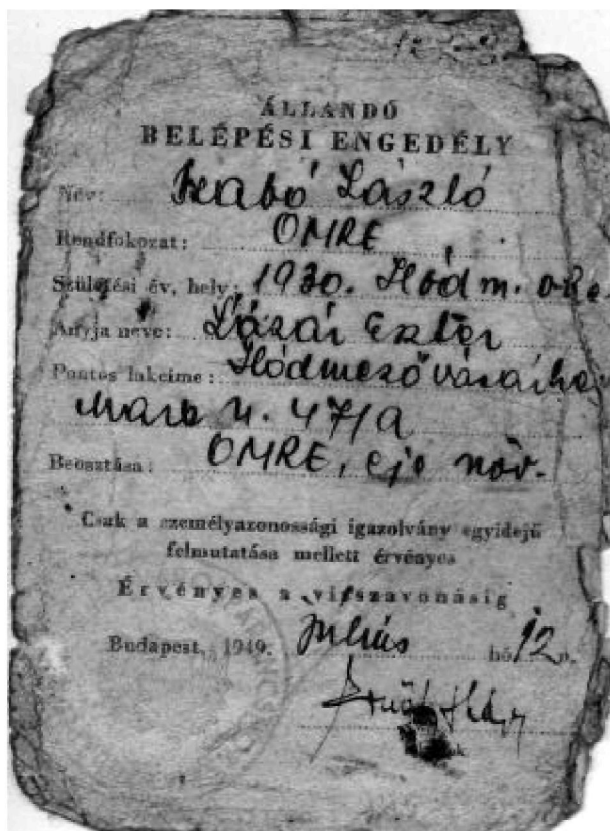 ÁLLANDÓ
BELÉPÉSI ENGEDÉLY
Név: Szabó László
Rendfokozat: OMRE
Születési év, hely: 1930. Hódm.
Anyja neve: Lázár Eszter
Pontos lakcime:
u. 47/a
Beosztása: OMRE, növ.
Csak a személyazonossági igazolvány egyidejű
felmutatása mellett érvényes
Érvényes a visszavonásig
Budapest, 1949. Julius hó 12 n.